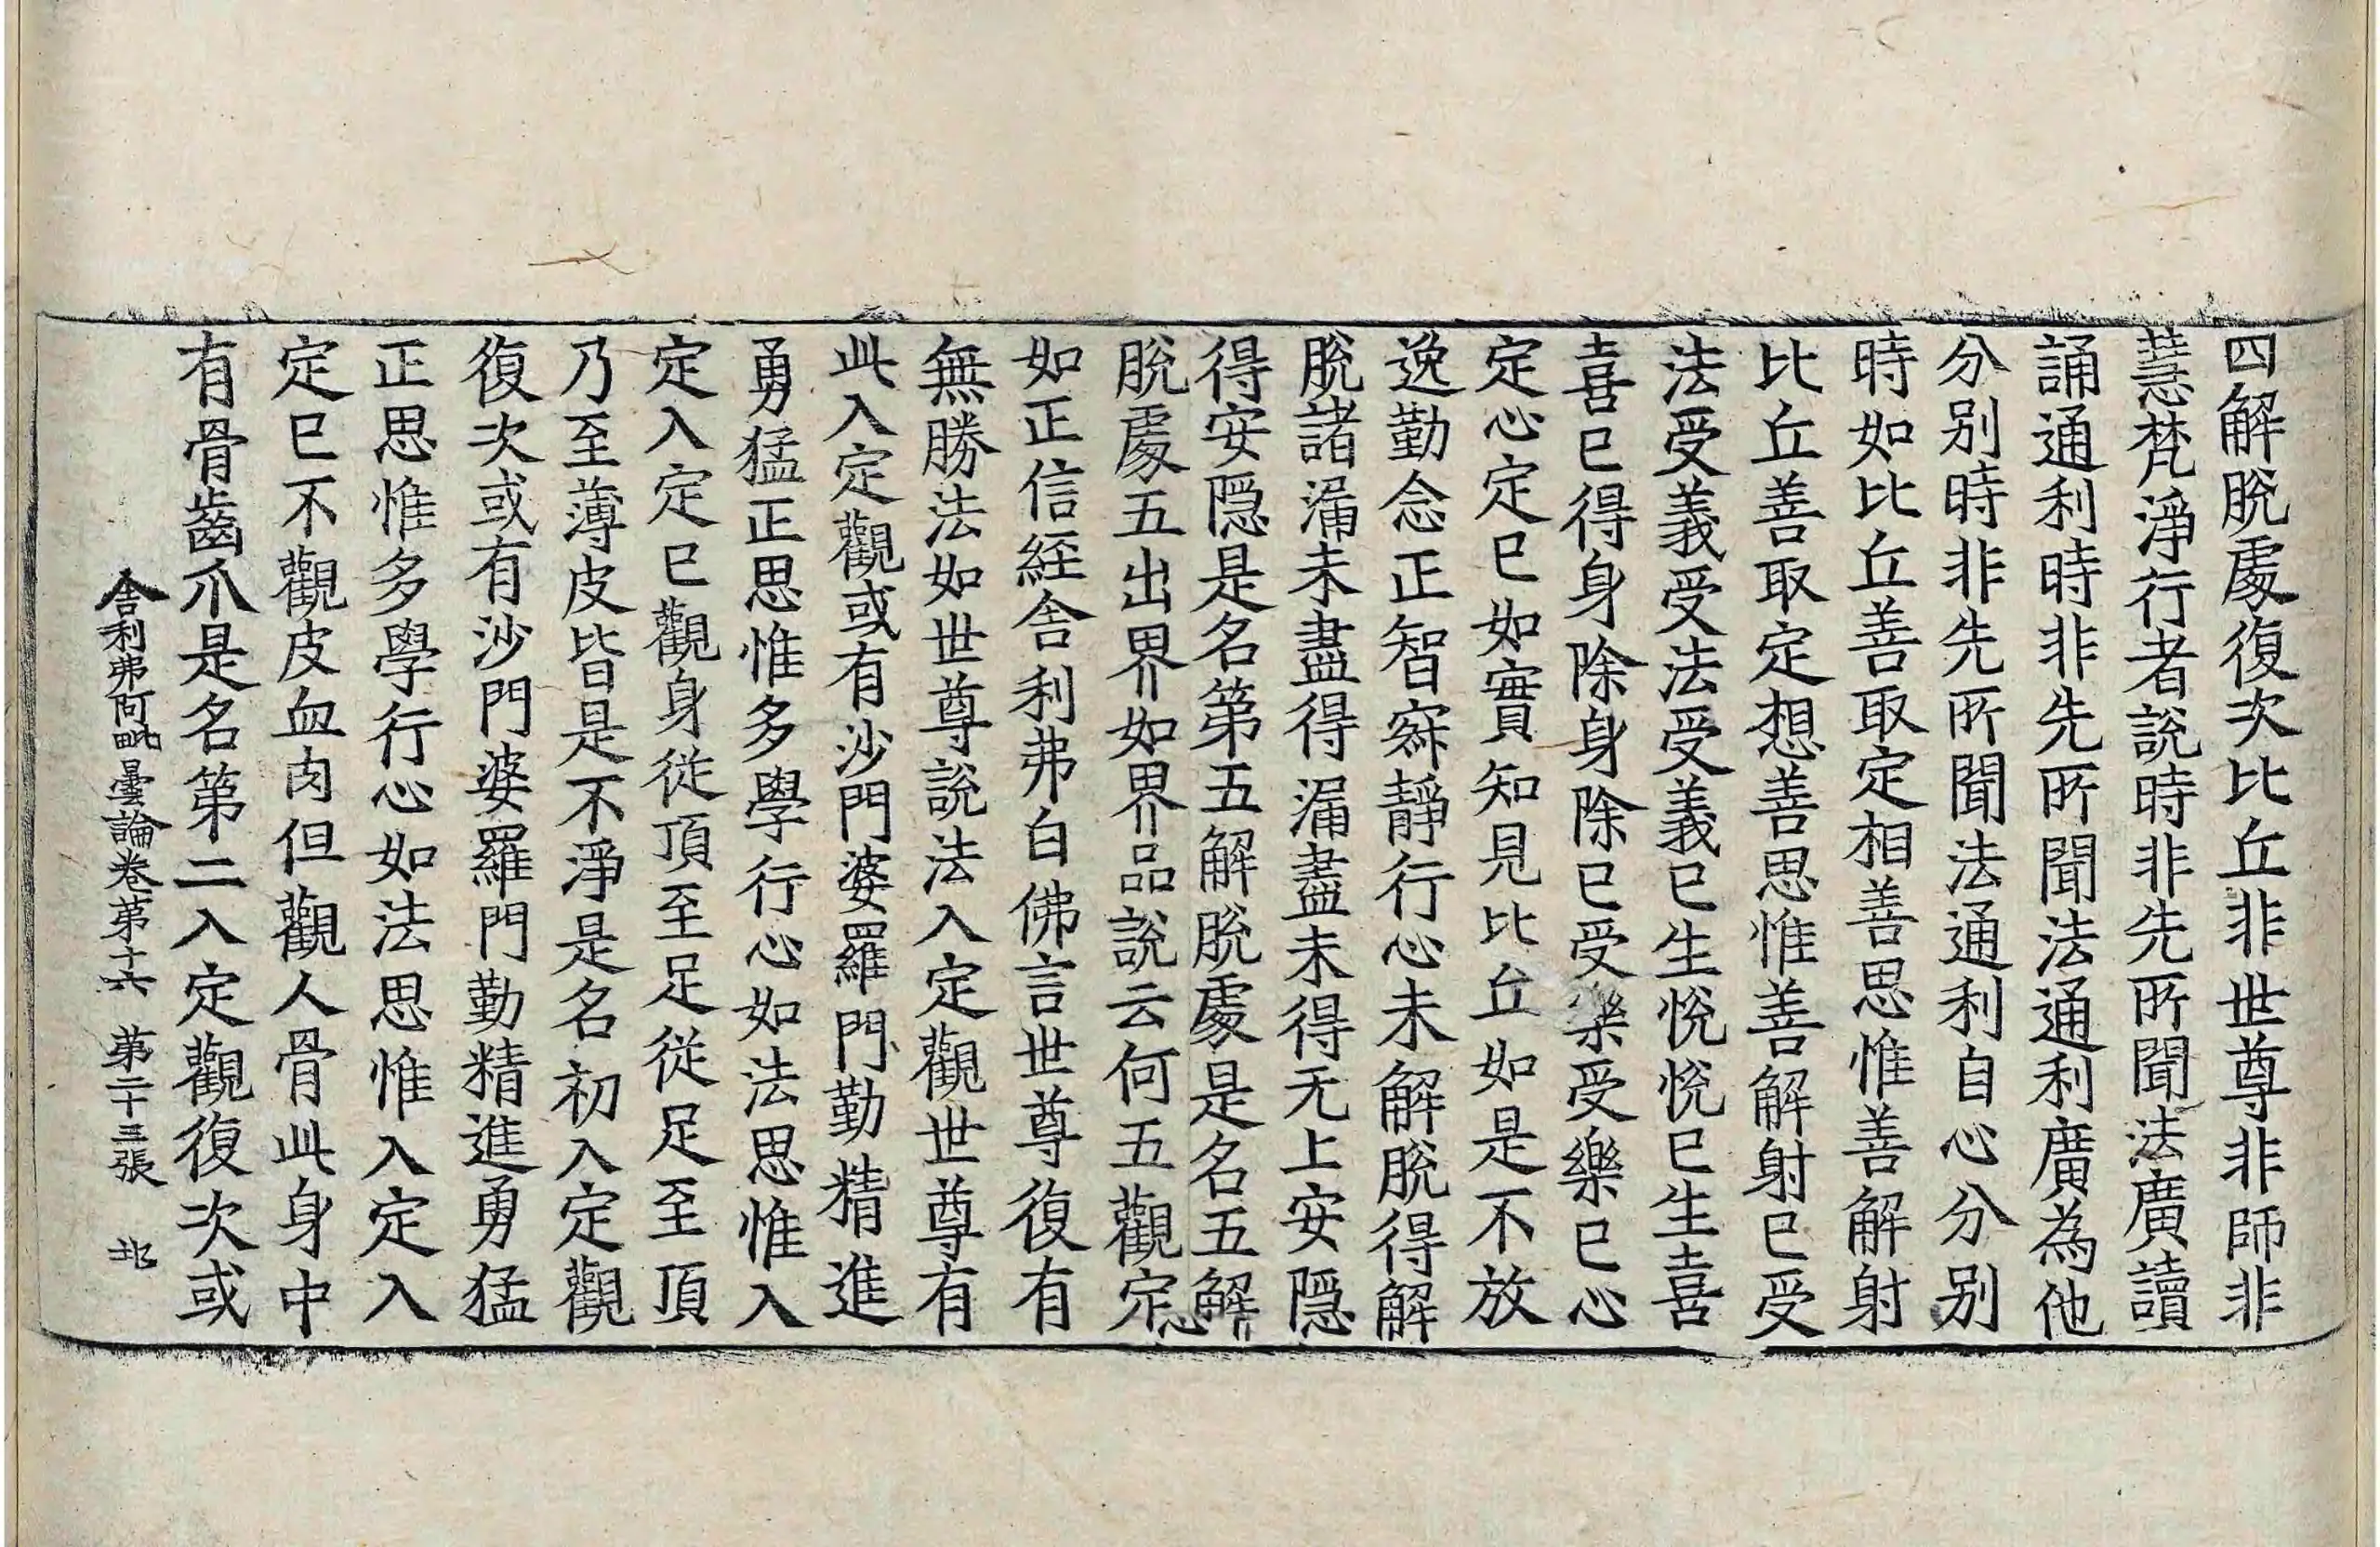 四解脫處復次比丘非世尊非師非
慧梵淨行者說時非先所聞法廣讀
誦通利時非先所聞法通利廣為他
分別時非先所聞法通利自心分別
時如比丘善取定相善思惟善解射
比丘善取定想善思惟善解射已受
法受義受法受義已生悅悅已生喜
喜已得身除身除已受樂受樂已心
定心定已如實知見比丘如是不放
逸勤念正智寂靜行心未解脫得解
脫諸漏未盡得漏盡未得无上安隱
得安隱是名第五解脫處是名五解
脫處五出界如界品說云何五觀定
如正信經舍利弗白佛言世尊復有
無勝法如世尊說法入定觀世尊有
此入定觀或有沙門婆羅門勤精進
勇猛正思惟多學行心如法思惟入
定入定已觀身從頂至足從足至頂
乃至薄皮皆是不淨是名初入定觀
復次或有沙門婆羅門勤精進勇猛
正思惟多學行心如法思惟入定入
定已不觀皮血肉但觀人骨此身中
有骨齒爪是名第二入定觀復次或
舍利弗阿毗曇論卷第十六 第二十三張